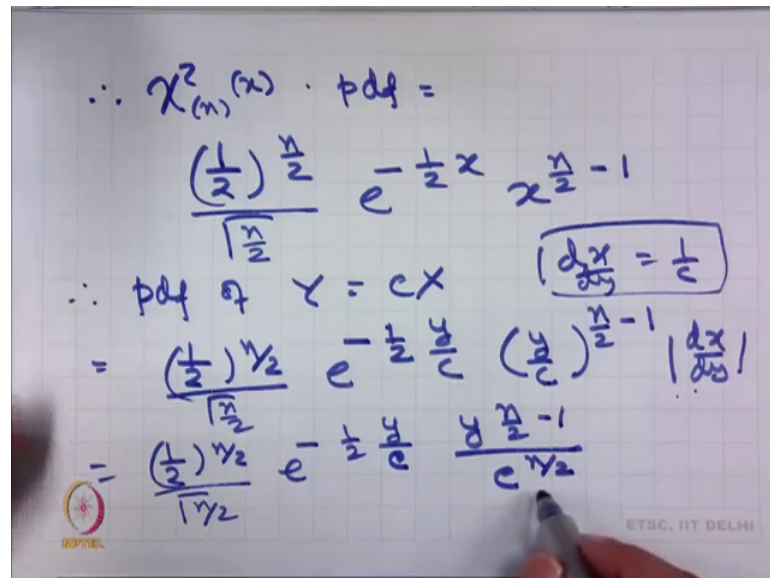 ∴ χ²₍ₙ₎(x) . pdf =
(1/2)^(n/2) / Γ(n/2) e^(-1/2 x) x^(n/2 - 1)
∴ pdf of Y = cX | dx/dy = 1/c
= (1/2)^(n/2) / Γ(n/2) e^(-1/2 y/c) (y/c)^(n/2 - 1) |dx/dy|
= (1/2)^(n/2) / Γ(n/2) e^(-1/2 y/c) y^(n/2 - 1) / c^(n/2)
NPTEL
ETSC, IIT DELHI